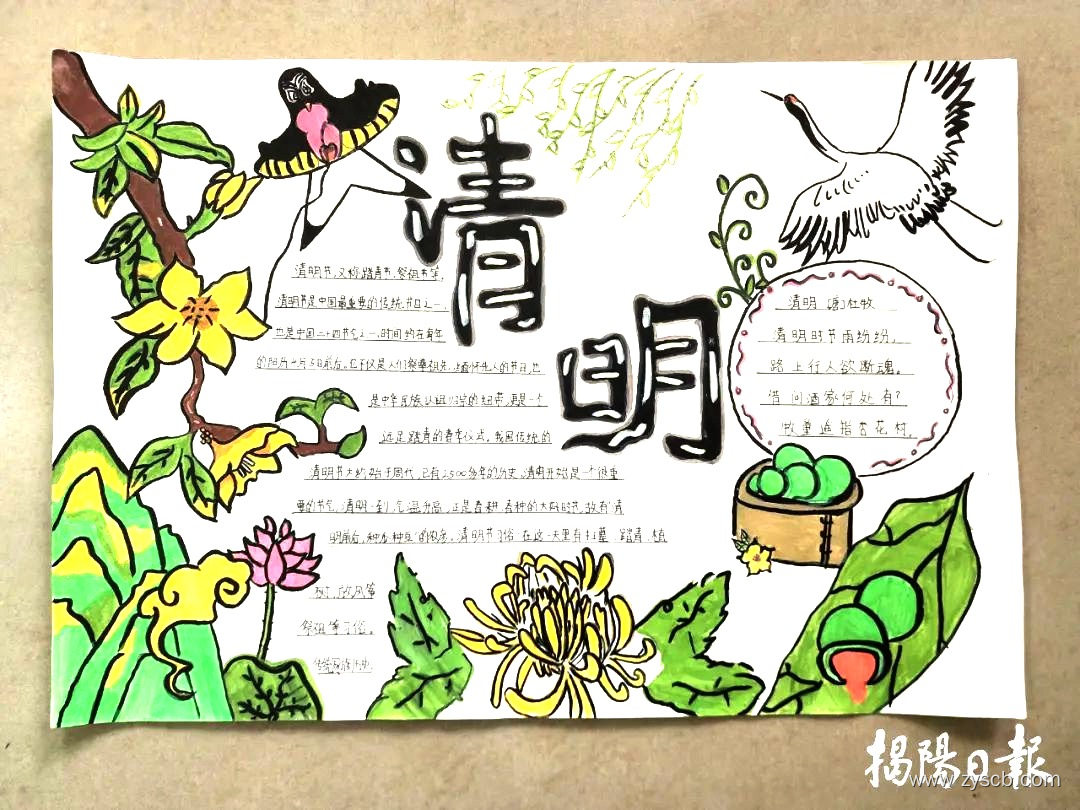 清明
清明节,又称踏青节、祭祖节等,
清明节是中国最重要的传统节日之一,
也是中国二十四节气之一,时间约在每年
的阳历4月5日前后。它不仅是人们祭奠祖先、缅怀先人的节日,也
是中华民族认祖归宗的纽带,更是一个
远足踏青的春季仪式。我国传统的
清明节大约始于周代,已有2500多年的历史,清明开始是一个很重
要的节气,清明一到,气温升高,正是春耕、春种的大好时节,故有“清
明前后,种瓜种豆”的农谚。清明节习俗 在这一天里有扫墓、踏青、植
树、放风筝
祭祖等习俗。
清明 唐)杜牧
清明时节雨纷纷,
路上行人欲断魂。
借问酒家何处有?
牧童遥指杏花村。
揭陽日報
www.zyscb.com